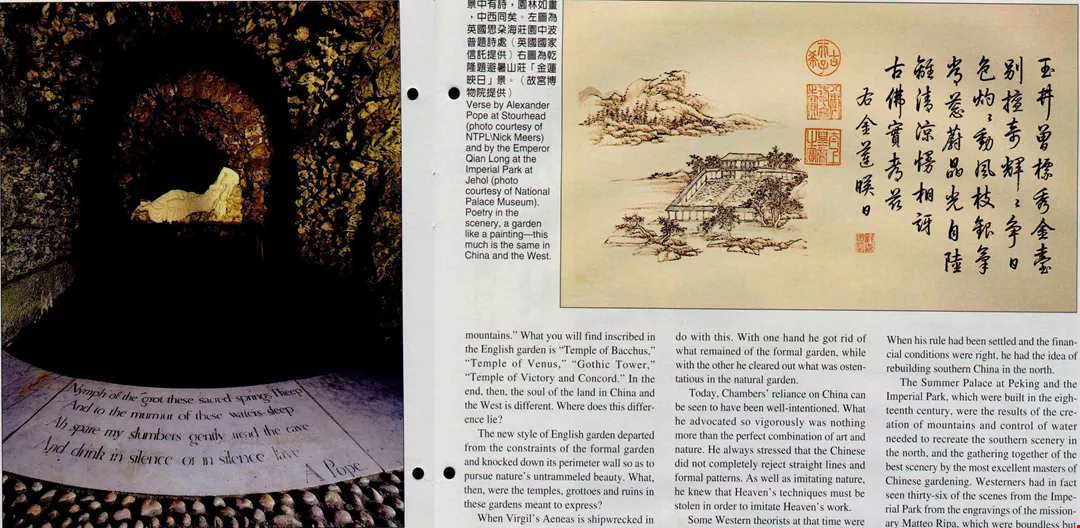 Nymph of the grot these sacred springs I keep
And to the murmur of these waters sleep
Ah spare my slumbers gently tread the cave
And drink in silence or in silence lave
A Pope
景中有詩，園林如畫
，中西同矣。左圖為
英國思朵海莊園中波
普題詩處（英國國家
信託提供）右圖為乾
隆題避暑山莊「金蓮
映日」景。（故宮博
物院提供）
Verse by Alexander
Pope at Stourhead
(photo courtesy of
NTPL\Nick Meers)
and by the Emperor
Qian Long at the
Imperial Park at
Jehol (photo
courtesy of National
Palace Museum).
Poetry in the
scenery, a garden
like a painting—this
much is the same in
China and the West.
玉井曾標秀金臺
別擅奇輝〻爭日
色灼〻動風枝銀
蔚晶光自陸
離清涼慢相訝
古佛實考茲
右金蓮暎日
mountains.” What you will find inscribed in
the English garden is “Temple of Bacchus,”
“Temple of Venus,” “Gothic Tower,”
“Temple of Victory and Concord.” In the
end, then, the soul of the land in China and
the West is different. Where does this differ-
ence lie?
The new style of English garden departed
from the constraints of the formal garden
and knocked down its perimeter wall so as to
pursue nature’s untrammeled beauty. What,
then, were the temples, grottoes and ruins in
these gardens meant to express?
When Virgil’s Aeneas is shipwrecked in
do with this. With one hand he got rid of
what remained of the formal garden, while
with the other he cleared out what was osten-
tatious in the natural garden.
Today, Chambers’ reliance on China can
be seen to have been well-intentioned. What
he advocated so vigorously was nothing
more than the perfect combination of art and
nature. He always stressed that the Chinese
did not completely reject straight lines and
formal patterns. As well as imitating nature,
he knew that Heaven’s techniques must be
stolen in order to imitate Heaven’s work.
Some Western theorists at that time were
When his rule had been settled and the finan-
cial conditions were right, he had the idea of
rebuilding southern China in the north.
The Summer Palace at Peking and the
Imperial Park, which were built in the eigh-
teenth century, were the results of the cre-
ation of mountains and control of water
needed to recreate the southern scenery in
the north, and the gathering together of the
best scenery by the most excellent masters of
Chinese gardening. Westerners had in fact
seen thirty-six of the scenes from the Impe-
rial Park from the engravings of the mission-
ary Matteo Ripa, which were boundless but